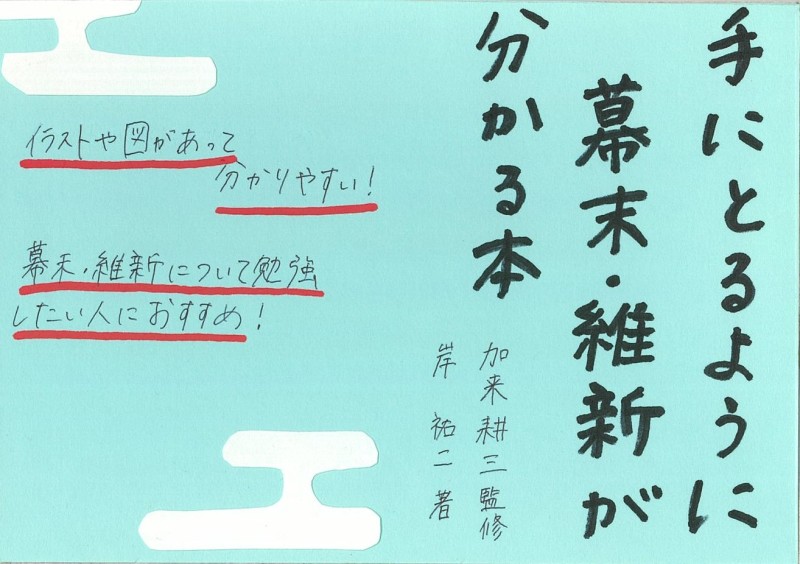 手にとるように
幕末・維新が
分かる本
加来耕三監修
岸祐二著
イラストや図があって
分かりやすい!
幕末・維新について勉強
したい人におすすめ!